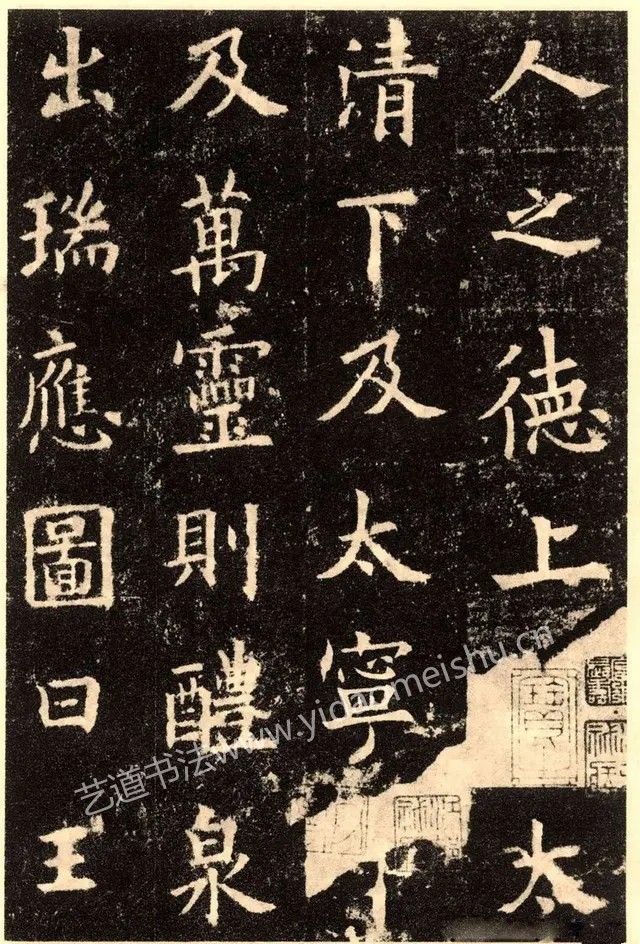 人之德上太
清下及太寧
及萬靈則醴泉
出瑞應圖曰王
艺道书法www.yidaomeishu.cn